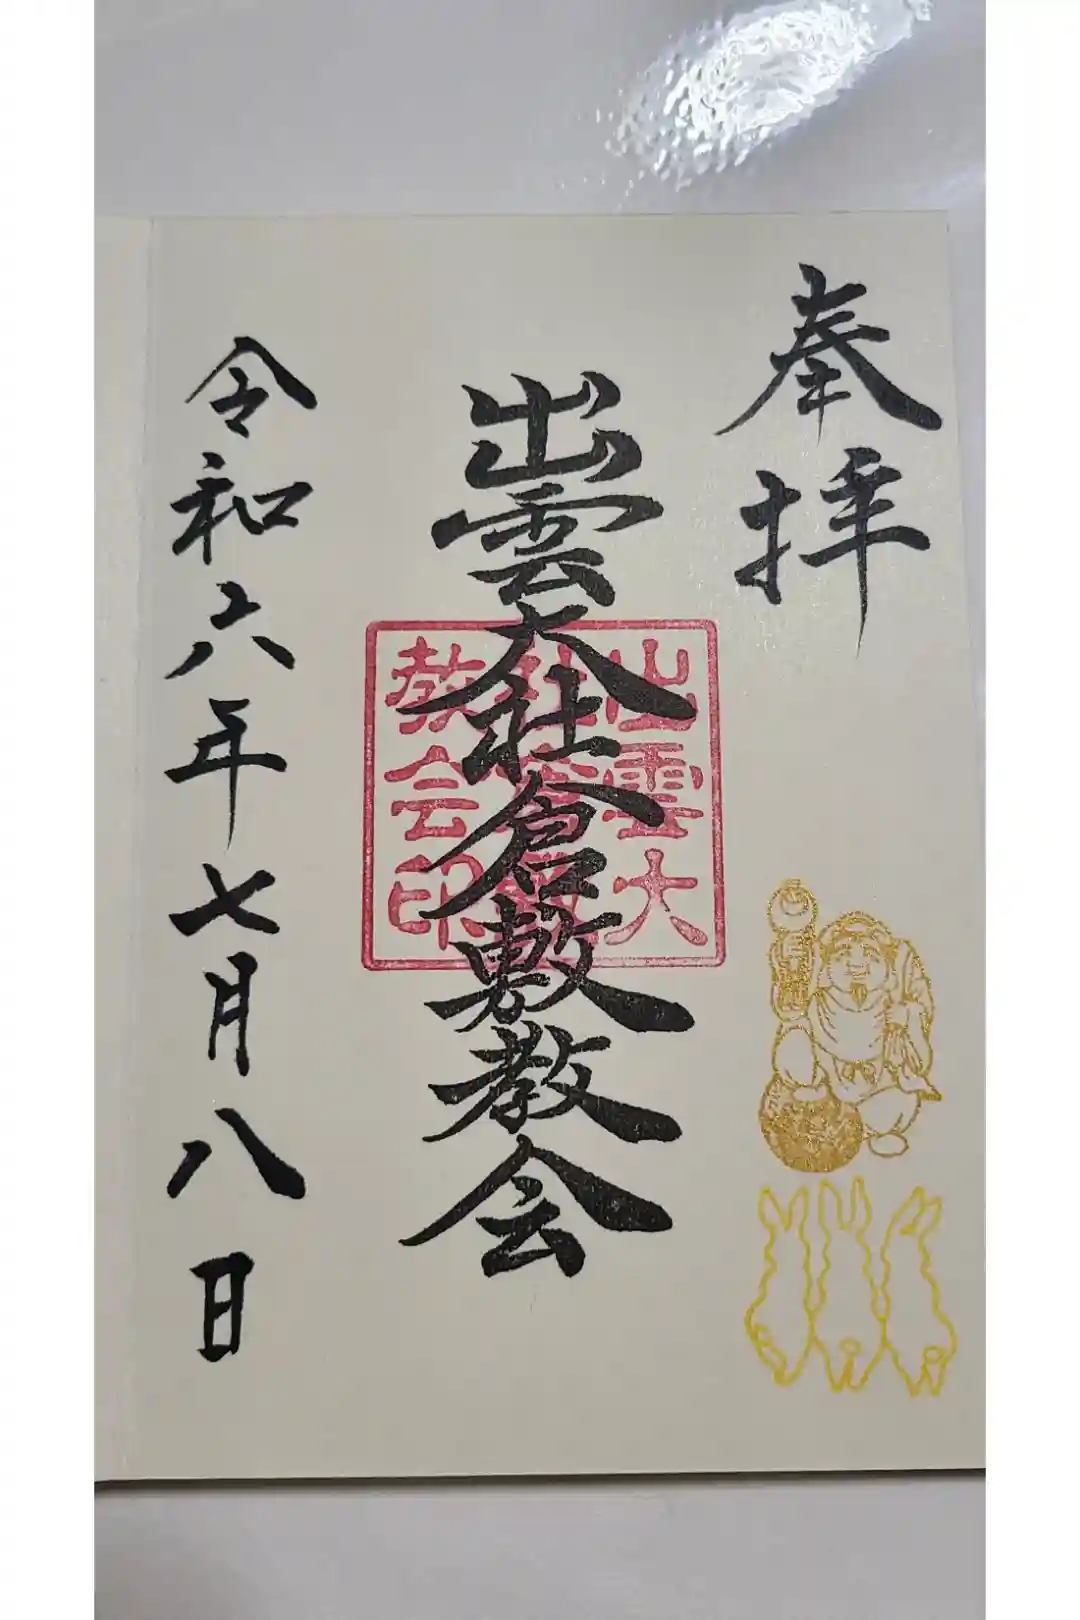 奉拝
出雲大社倉敷教会
出雲大
教会印
令和六年七月八日